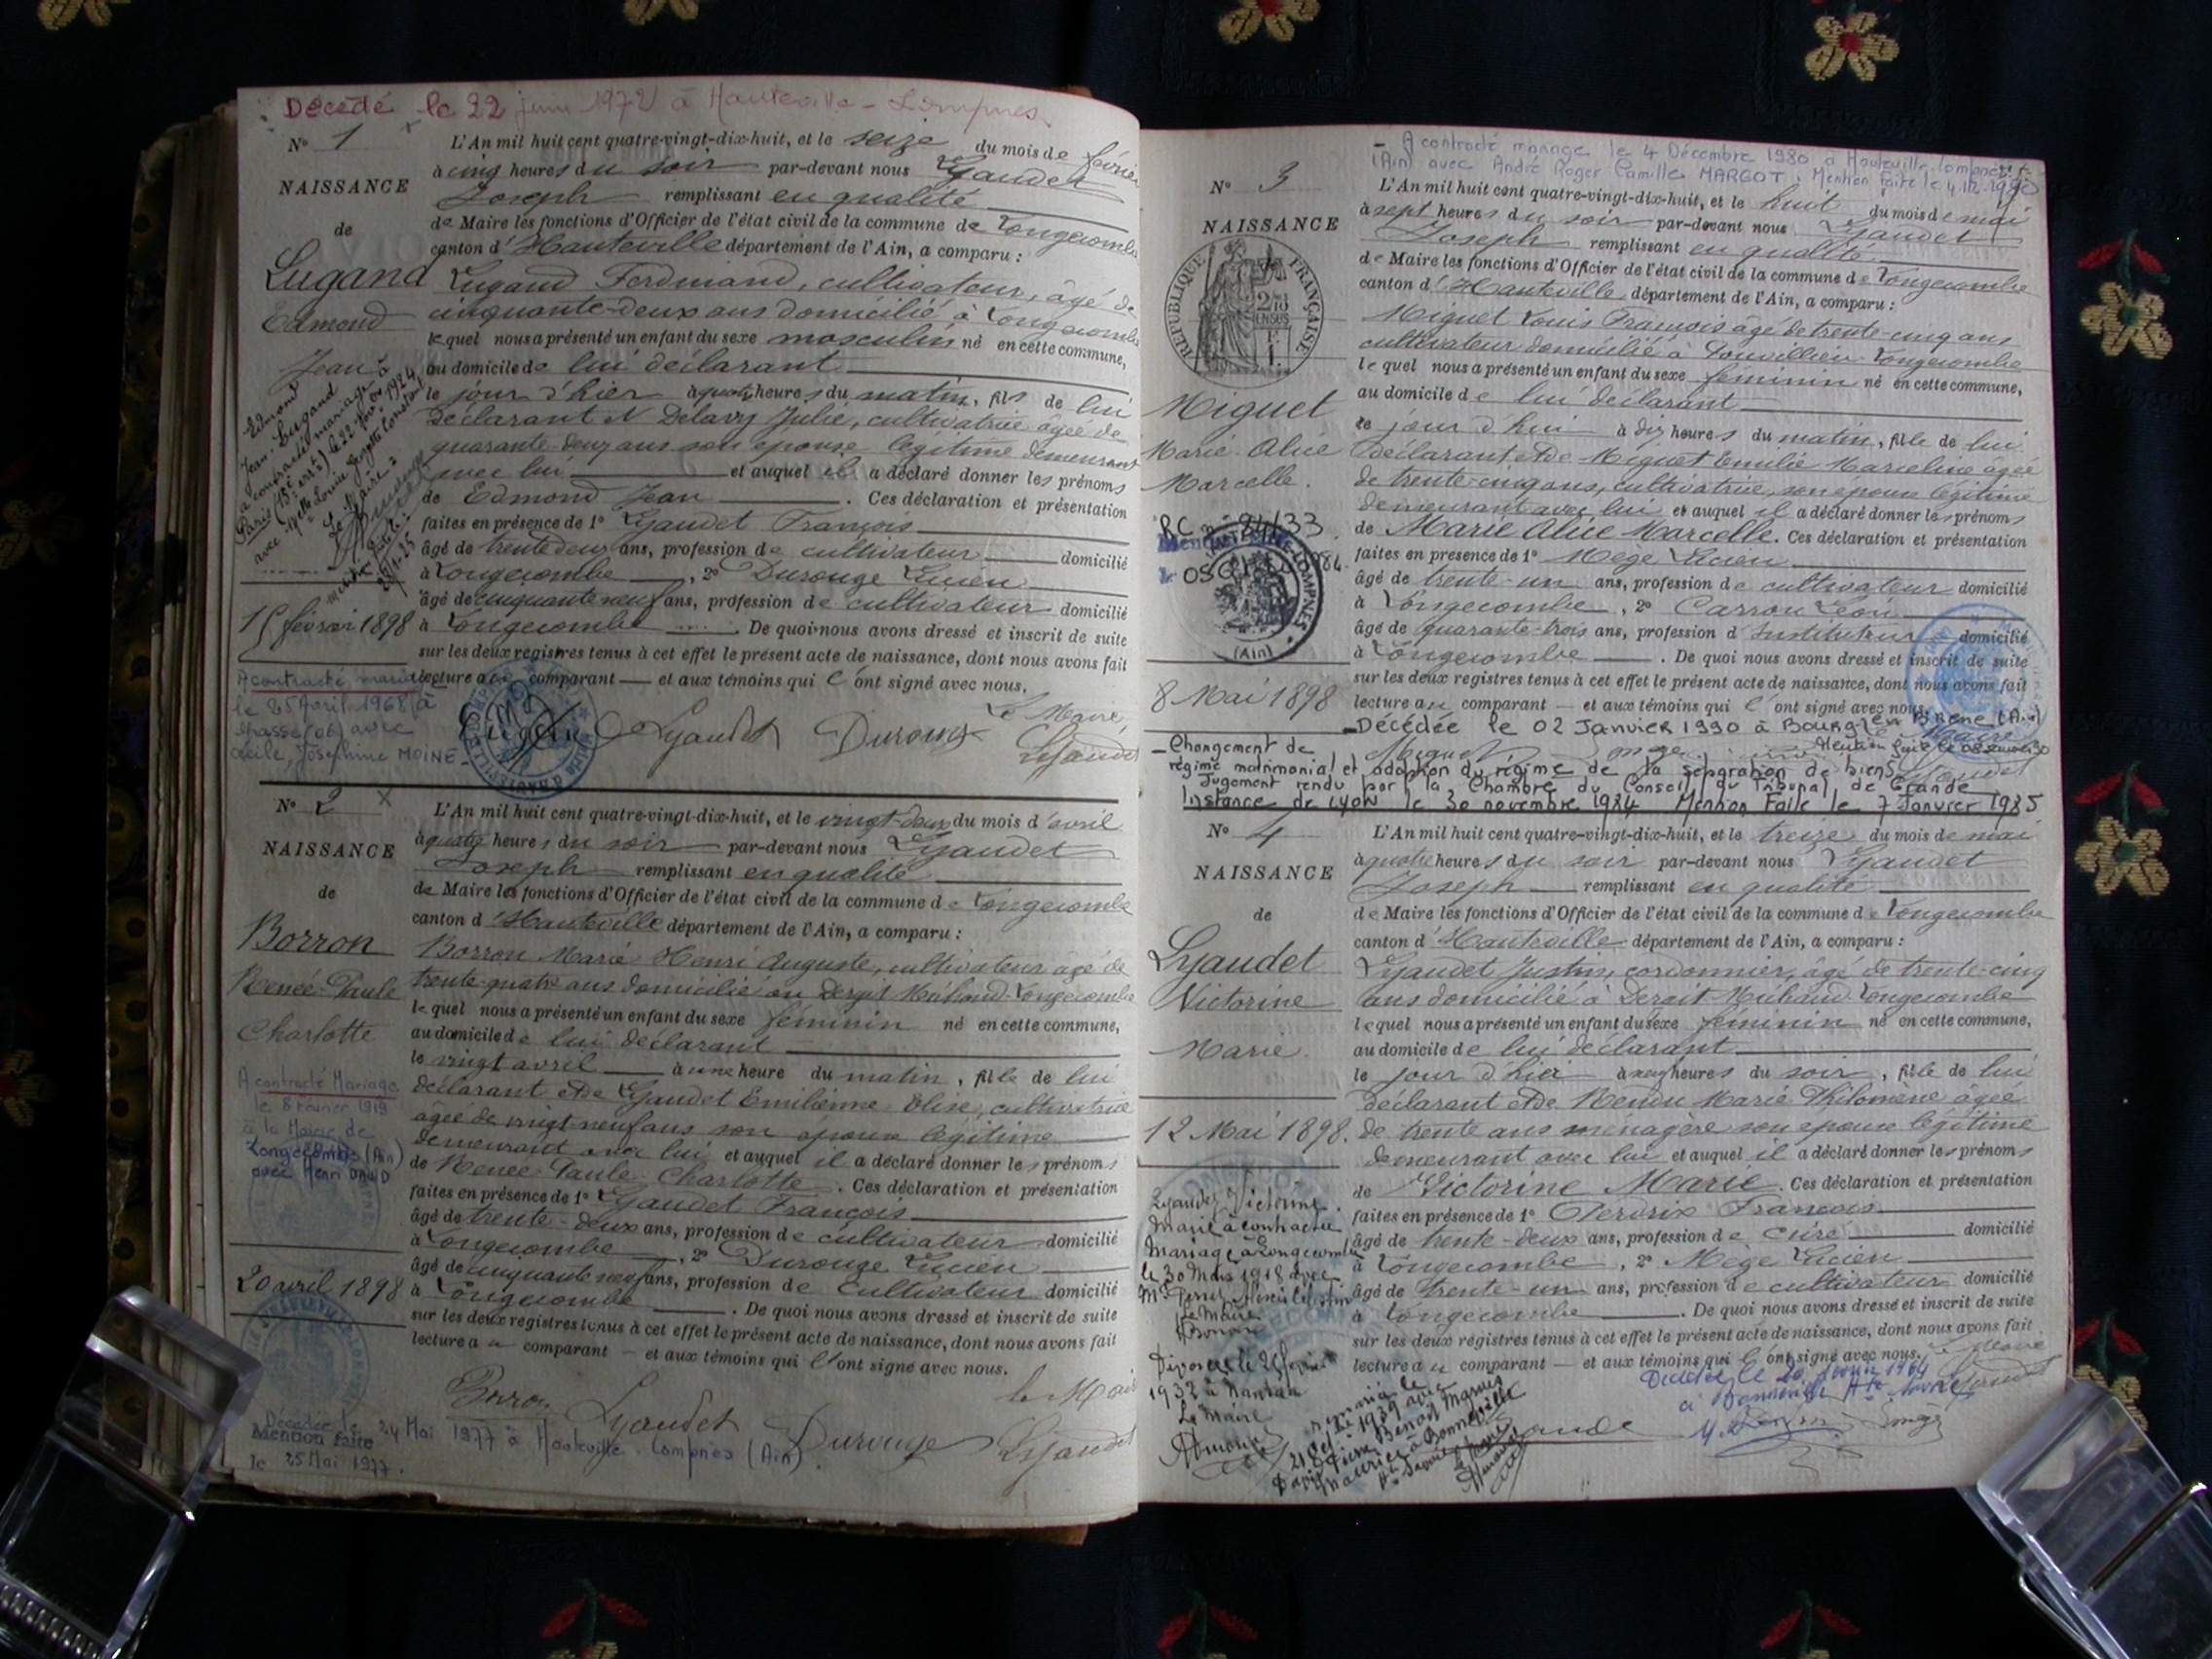 Décédé le 22 juin 1972 à Hauteville-Lompnes
N° 1
NAISSANCE
de
Lugand
Edmond
Jean
L'An mil huit cent quatre-vingt-dix-huit, et le seize du mois de février
à cinq heures du soir par-devant nous Lyaudet
Joseph remplissant en qualité
de Maire les fonctions d'Officier de l'état civil de la commune de Longecombe
canton d'Hauteville département de l'Ain, a comparu :
Lugand Ferdinand, cultivateur, âgé de
cinquante-deux ans domicilié à Longecombe
lequel nous a présenté un enfant du sexe masculin né en cette commune,
au domicile de lui déclarant
le jour d'hier à quatre heures du matin, fils de lui
déclarant et Delavy Julie, cultivatrice âgée de
quarante-deux ans son épouse légitime demeurant
avec lui et auquel il a déclaré donner les prénoms
de Edmond Jean. Ces déclaration et présentation
faites en présence de 1° Lyaudet François
âgé de trente-deux ans, profession de cultivateur domicilié
à Longecombe, 2° Durouge Lucien
âgé de cinquante neuf ans, profession de cultivateur domicilié
à Longecombe. De quoi nous avons dressé et inscrit de suite
sur les deux registres tenus à cet effet le présent acte de naissance, dont nous avons fait
lecture au comparant et aux témoins qui l'ont signé avec nous.
Edmond
Jean Lugand
a contracté mariage à
Paris (15e arrt) le 22 1924
avec Louise
Le Maire
15 février 1898
A contracté mariage
le 25 Avril 1968 à
Grasse (06) avec
Cécile, Joséphine MOINE
Lugand Lyaudet Durouge Le Maire
Lyaudet
N° 2
NAISSANCE
de
Borron
Renée-Paule
Charlotte
L'An mil huit cent quatre-vingt-dix-huit, et le vingt-deux du mois d'avril
à quatre heures du soir par-devant nous Lyaudet
Joseph remplissant en qualité
de Maire les fonctions d'Officier de l'état civil de la commune de Longecombe
canton d'Hauteville département de l'Ain, a comparu :
Borron Marie Henri Auguste, cultivateur âgé de
trente-quatre ans domicilié au Dergit Michaud-Longecombe
lequel nous a présenté un enfant du sexe féminin né en cette commune,
au domicile de lui déclarant
le vingt avril à une heure du matin, fille de lui
déclarant et de Lyaudet Emilienne Elise, cultivatrice
âgée de vingt-neuf ans son épouse légitime
demeurant avec lui et auquel il a déclaré donner les prénoms
de Renée Paule Charlotte. Ces déclaration et présentation
faites en présence de 1° Lyaudet François
âgé de trente-deux ans, profession de cultivateur domicilié
à Longecombe, 2° Durouge Lucien
âgé de cinquante neuf ans, profession de cultivateur domicilié
à Longecombe. De quoi nous avons dressé et inscrit de suite
sur les deux registres tenus à cet effet le présent acte de naissance, dont nous avons fait
lecture au comparant et aux témoins qui l'ont signé avec nous.
A contracté Mariage
le 8 Février 1919
à la Mairie de
Longecombe (Ain)
avec Henri DAVID
20 avril 1898
Borron Lyaudet Durouge Le Maire
Lyaudet
Décédée le 24 Mai 1977 à Hauteville-Lompnes (Ain).
Mention faite
le 25 Mai 1977.
- A contracté mariage le 4 Décembre 1980 à Hauteville-Lompnes
(Ain) avec André Roger Camille MARGOT. Mention faite le 4.12.1980
N° 3
NAISSANCE
REPUBLIQUE FRANÇAISE
Miguet
Marie-Alice
Marcelle.
L'An mil huit cent quatre-vingt-dix-huit, et le huit du mois de mai
à sept heures du soir par-devant nous Lyaudet
Joseph remplissant en qualité
de Maire les fonctions d'Officier de l'état civil de la commune de Longecombe
canton d'Hauteville, département de l'Ain, a comparu :
Miguet Louis François âgé de trente-cinq ans
cultivateur domicilié à Longecombe
lequel nous a présenté un enfant du sexe féminin né en cette commune,
au domicile de lui déclarant
ce jour d'hui à dix heures du matin, fille de lui
déclarant et de Miguet Emilie Marceline âgée
de trente-cinq ans, cultivatrice, son épouse légitime
demeurant avec lui et auquel il a déclaré donner les prénoms
de Marie Alice Marcelle. Ces déclaration et présentation
faites en présence de 1° Mège Lucien
âgé de trente-un ans, profession de cultivateur domicilié
à Longecombe, 2° Carrou Léon
âgé de quarante-trois ans, profession d'Instituteur domicilié
à Longecombe. De quoi nous avons dressé et inscrit de suite
sur les deux registres tenus à cet effet le présent acte de naissance, dont nous avons fait
lecture au comparant et aux témoins qui l'ont signé avec nous.
RC n° 84/33
(Ain)
8 Mai 1898
- Décédée le 02 Janvier 1990 à Bourg en Bresse (Ain)
- Changement de
régime matrimonial et adoption du régime de la séparation de biens
Jugement rendu par la Chambre du Conseil du Tribunal de Grande
Instance de Lyon le 30 novembre 1984 Mention Faite le 7 Janvier 1985
N° 4
NAISSANCE
de
Lyaudet
Victorine
Marie
L'An mil huit cent quatre-vingt-dix-huit, et le treize du mois de mai
à quatre heures du soir par-devant nous Lyaudet
Joseph remplissant en qualité
de Maire les fonctions d'Officier de l'état civil de la commune de Longecombe
canton d'Hauteville département de l'Ain, a comparu :
Lyaudet Justin, cordonnier, âgé de trente-cinq
ans domicilié à Dergit Michaud-Longecombe
lequel nous a présenté un enfant du sexe féminin né en cette commune,
au domicile de lui déclarant
le jour d'hier à heures du soir, fille de lui
déclarant et de Rendu Marie Philomène âgée
de trente ans ménagère son épouse légitime
demeurant avec lui et auquel il a déclaré donner les prénoms
de Victorine Marie. Ces déclaration et présentation
faites en présence de 1° François
âgé de trente-deux ans, profession de curé domicilié
à Longecombe, 2° Mège Lucien
âgé de trente-un ans, profession de cultivateur domicilié
à Longecombe. De quoi nous avons dressé et inscrit de suite
sur les deux registres tenus à cet effet le présent acte de naissance, dont nous avons fait
lecture au comparant et aux témoins qui l'ont signé avec nous.
12 Mai 1898.
Lyaudet Victorine
Marie a contracté
Mariage à Longecombe
le 30 Mars 1918 avec
Le Maire
Borron
Divorcée le
1932 à Nantua
Le Maire
remariée le
21 1939 avec
Benoit Marius
Maurice à Bonneville
Décédée le 20 février 1964
à Bonneville Hte Savoie